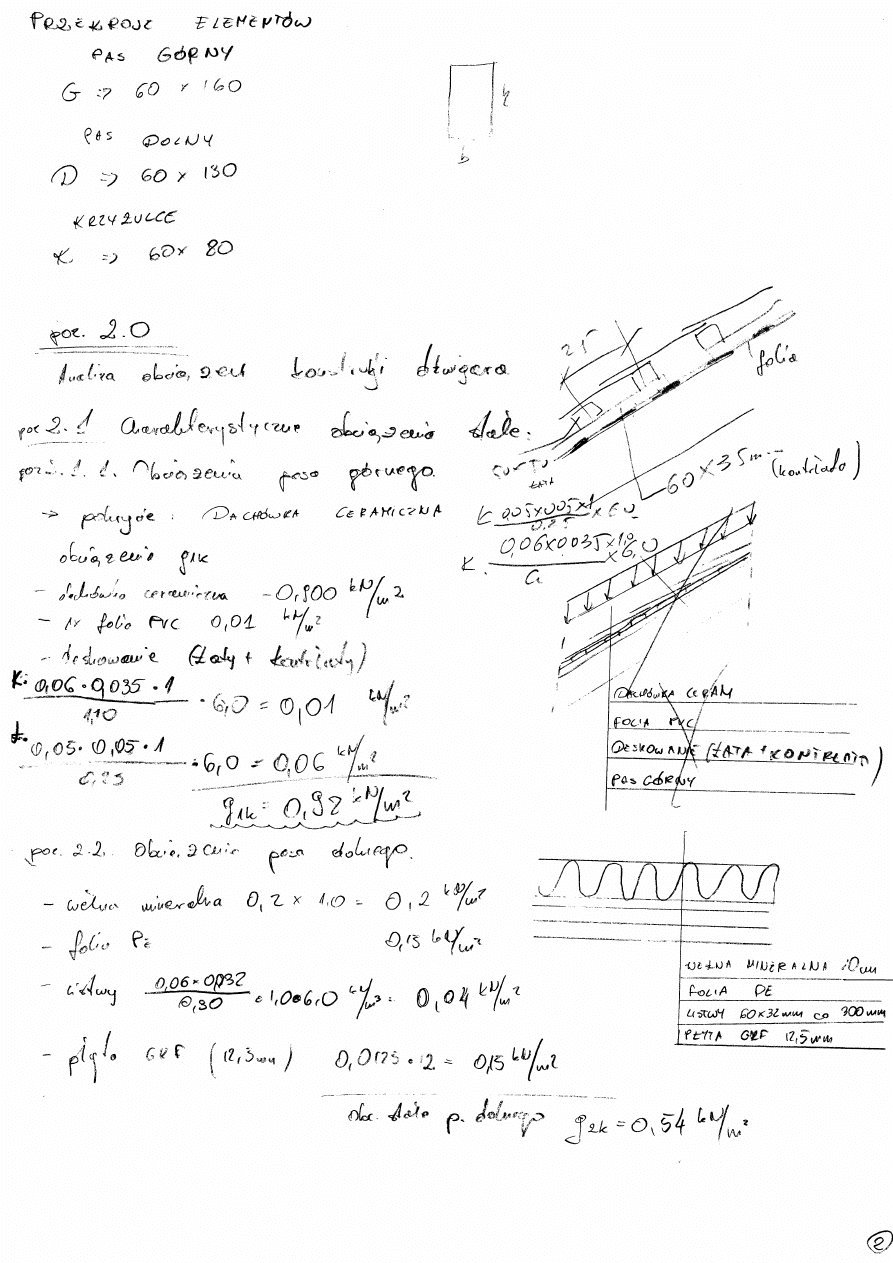 PRZEKROJE ELEMENTÓW
PAS GÓRNY
G => 60 x 160
h
b
PAS DOLNY
D => 60 x 130
KRZYŻULCE
K => 60x 80
poz. 2.0
Analiza obciążeń konstrukcji dźwigara
25
folia
poz 2.1 Charakterystyczne obciążenia stałe:
poz 2.1.1. Obciążenia pasa górnego.
ŁATA
60 x 35 m (kontrłata)
-> pokrycie: DACHÓWKA CERAMICZNA
Ł 0,05x0,05x1 x 6,0
0,25
obciążenie g1k
K. 0,06x0,035x1,0 x6,0
a
- dachówka ceramiczna - 0,900 kN/m2
- 1x folia PVC 0,01 kN/m2
- deskowanie (łaty + kontrłaty)
K: 0,06 · 0,035 · 1 · 6,0 = 0,01 kN/m2
1,10
Ł. 0,05 · 0,05 · 1 · 6,0 = 0,06 kN/m2
0,25
g1k = 0,92 kN/m2
DACHÓWKA CERAM
FOLIA PVC
DESKOWANIE (ŁATA + KONTRŁATA)
PAS GÓRNY
poz. 2.2. Obciążenia pasa dolnego.
- wełna mineralna 0,2 x 1,0 = 0,2 kN/m2
- folia PE 0,15 kN/m2
- listwy 0,06 · 0,032 · 1,0 · 6,0 kN/m3 = 0,04 kN/m2
0,30
- płyta GKF (12,5mm) 0,0125 · 12 = 0,15 kN/m2
obc. stałe p. dolnego g2k = 0,54 kN/m2
WEŁNA MINERALNA 20cm
FOLIA PE
LISTWY 60x32mm co 300mm
PŁYTA GKF 12,5mm
2